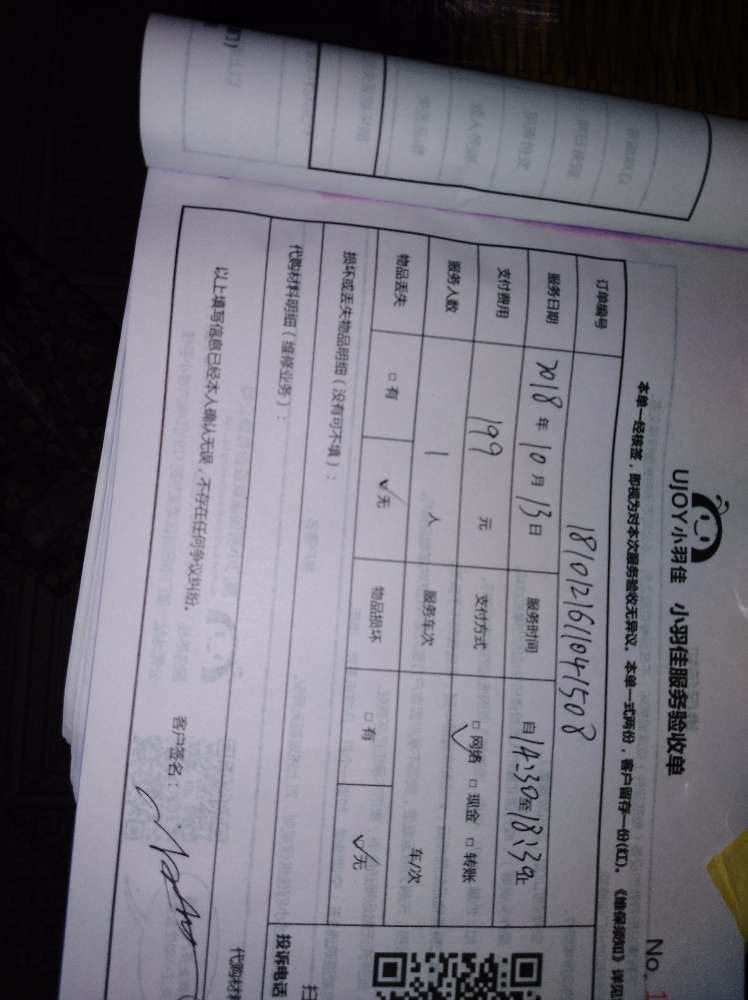 UJOY小羽佳 小羽佳服务验收单
No. 1
本单一经核签，即视为对本次服务验收无异议。本单一式两份，客户留存一份(红)。《维保须知》详见
订单编号 181012161041508
服务日期 2018年10月13日 服务时间 自14:30至18:30止
支付费用 199元 支付方式 □网络 □现金 □转账
服务人数 1人 服务车次 车/次
物品丢失 □有 ☑无 物品损坏 □有 ☑无
损坏或丢失物品明细（没有可不填）：
代购材料明细（维修业务）：
代购材料
以上填写信息已经本人确认无误，不存在任何争议纠纷。
客户签名：
投诉电话
扫